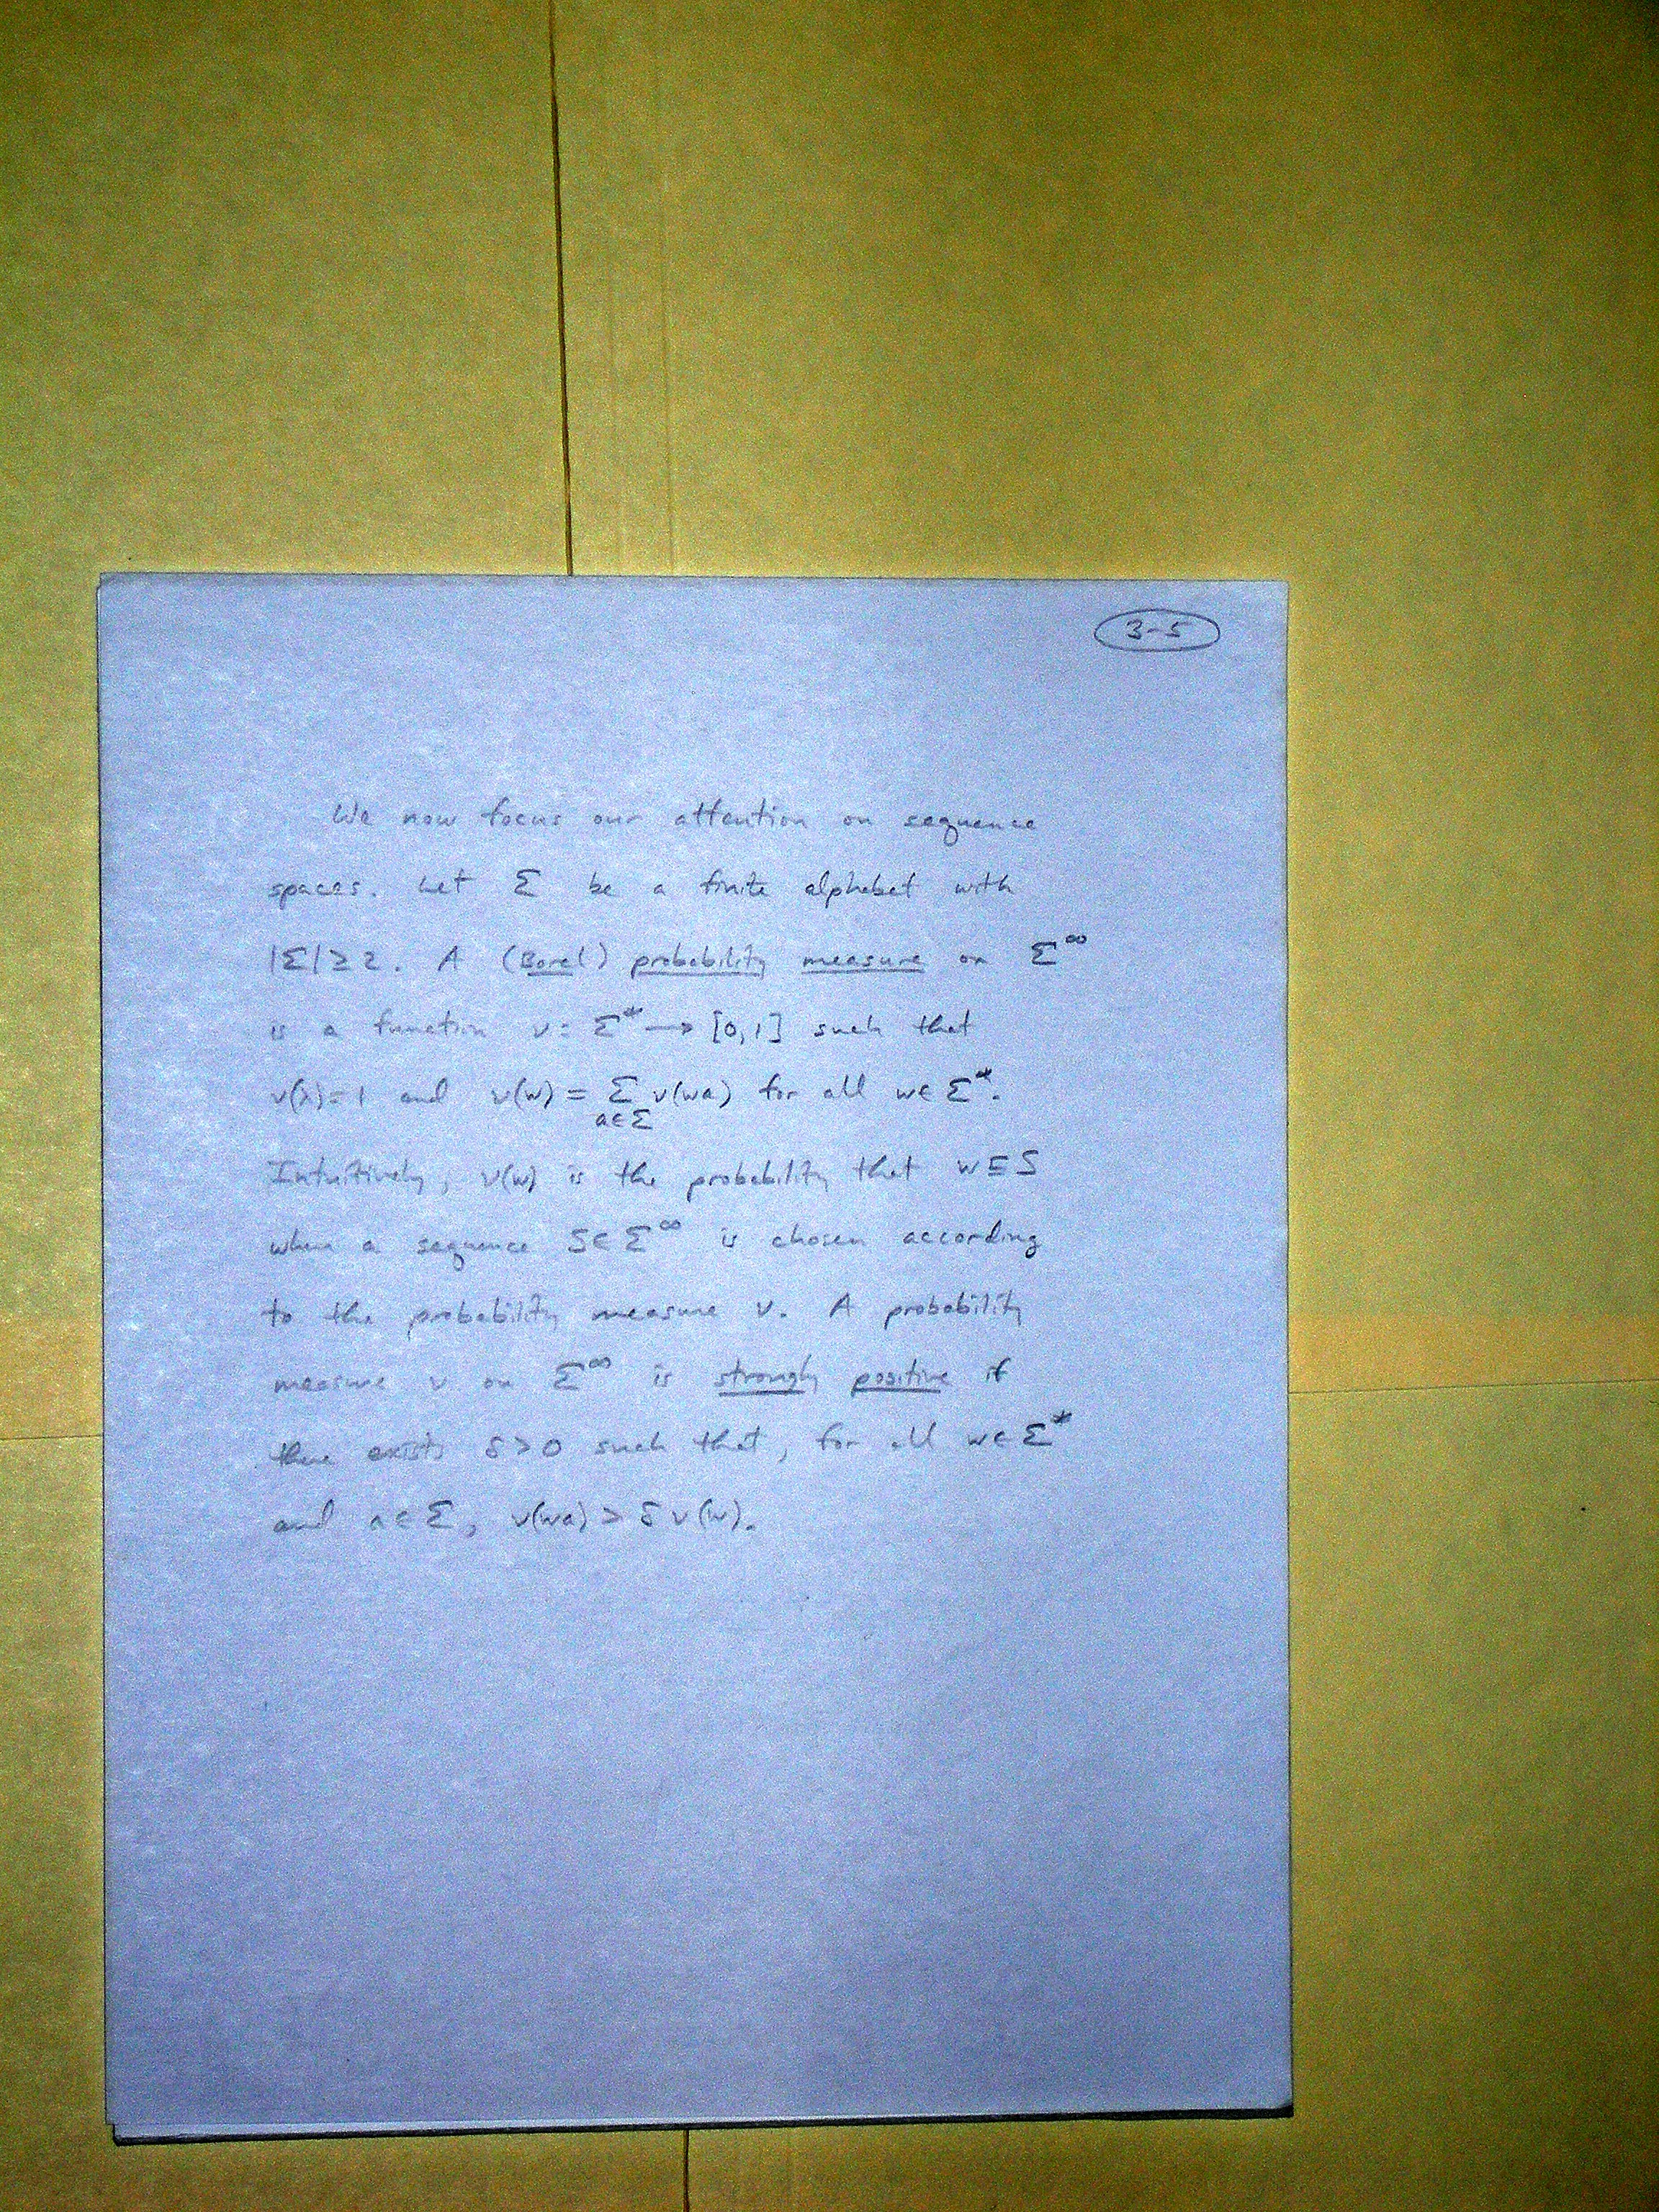 3-5
We now focus our attention on sequence
spaces. Let Σ be a finite alphabet with
|Σ| ≥ 2. A (Borel) probability measure on Σ^∞
is a function ν: Σ* → [0,1] such that
ν(λ)=1 and ν(w) = Σ ν(wa) for all w∈Σ*.
a∈Σ
Intuitively, ν(w) is the probability that w⊑S
when a sequence S∈Σ^∞ is chosen according
to the probability measure ν. A probability
measure ν on Σ^∞ is strongly positive if
there exists δ>0 such that, for all w∈Σ*
and a∈Σ, ν(wa) > δν(w).